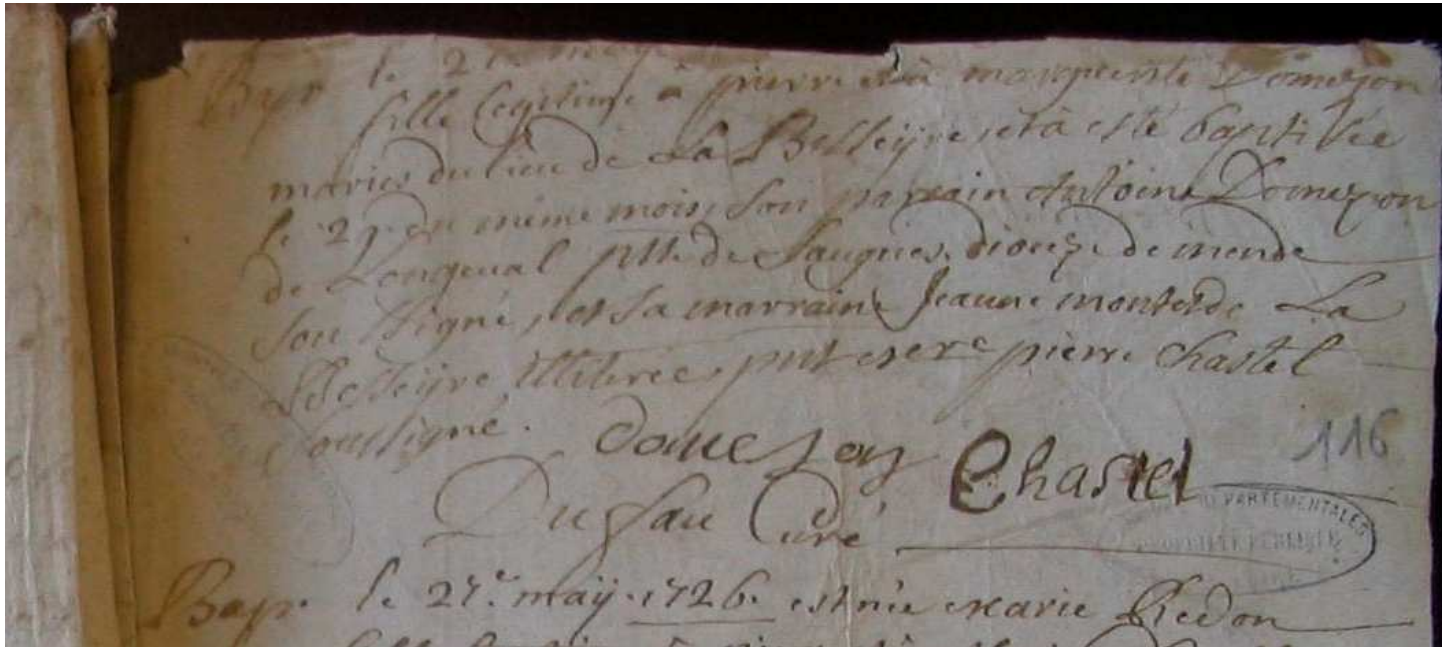 Bap. le 2
fille legitime à pierre et à marguerite Domezon
maries du lieu de La Besseÿre, et à esté baptisée
le 29 du même mois, son parrain Antoine Domezon
de Longeval psse de Saugues, dioceze de mende
sousigné, et sa marraine Jeanne La
Besseÿre illiteree, pnt pierre Chastel
soussigné.
Domezon Chastel
116
Dufau Curé
DEPARTEMENTALES
Bap. le 27e. maÿ. 1726. est née marie Redon
fille